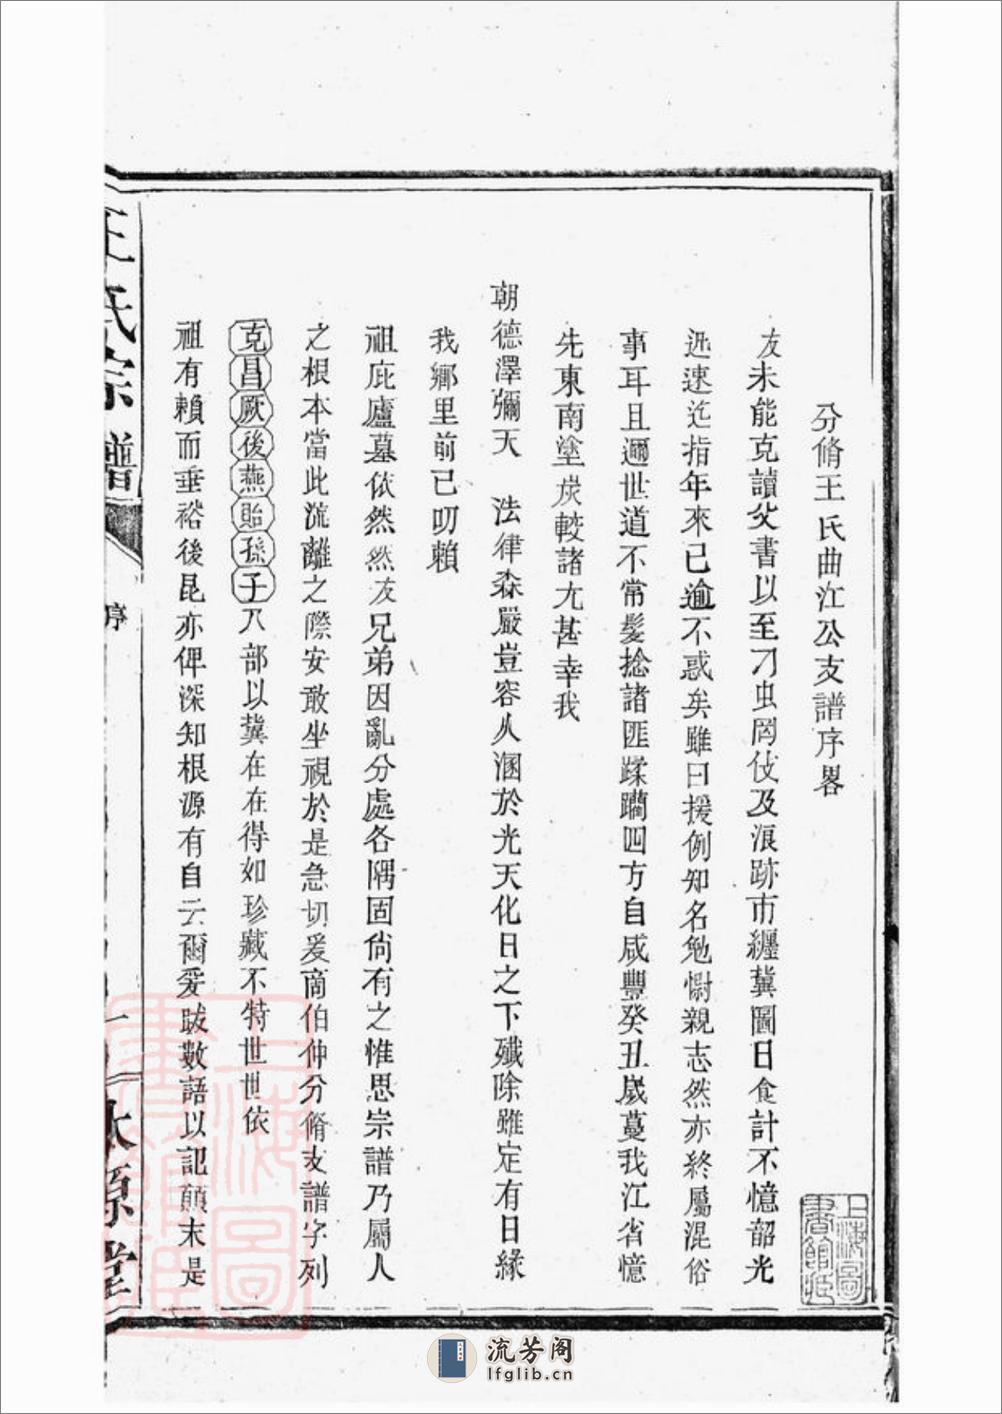 分脩王氏曲江公支譜序畧
友未能克讀父書以至刁虫罔伎及浪跡市纏冀圖日食計不憶韶光
迅速迄指年來已逾不惑矣雖曰援例知名勉慰親志然亦終屬混俗
事耳且邇世道不常髮捻諸匪蹂躪四方自咸豐癸丑歲蔓我江省憶
先東南塗炭較諸尤甚幸我
朝德澤彌天 法律森嚴豈容人溷於光天化日之下殲除雖定有日緣
我鄉里前已叨賴
祖庇廬墓依然然友兄弟因亂分處各隅固尙有之惟思崇譜乃屬人
之根本當此流離之際安敢坐視於是急切爰商伯仲分脩支譜字列
克昌厥後燕貽孫子八部以冀在在得如珍藏不特世世依
祖有賴而垂裕後昆亦俾深知根源有自云爾爰跋數語以記顛末是
王氏宗譜
序
一
上海圖書館藏
上海圖書館藏
流芳阁
lfglib.cn